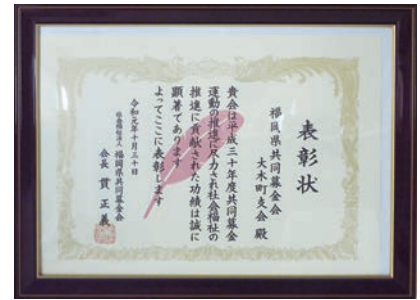 表彰状
福岡県共同募金会
大木町支会 殿
貴会は平成三十年度共同募金
運動の推進に尽力され社会福祉の
推進に貢献された功績は誠に
顕著であります
よってここに表彰します
令和元年十月三十日
社会福祉法人 福岡県共同募金会
会長 貫 正義